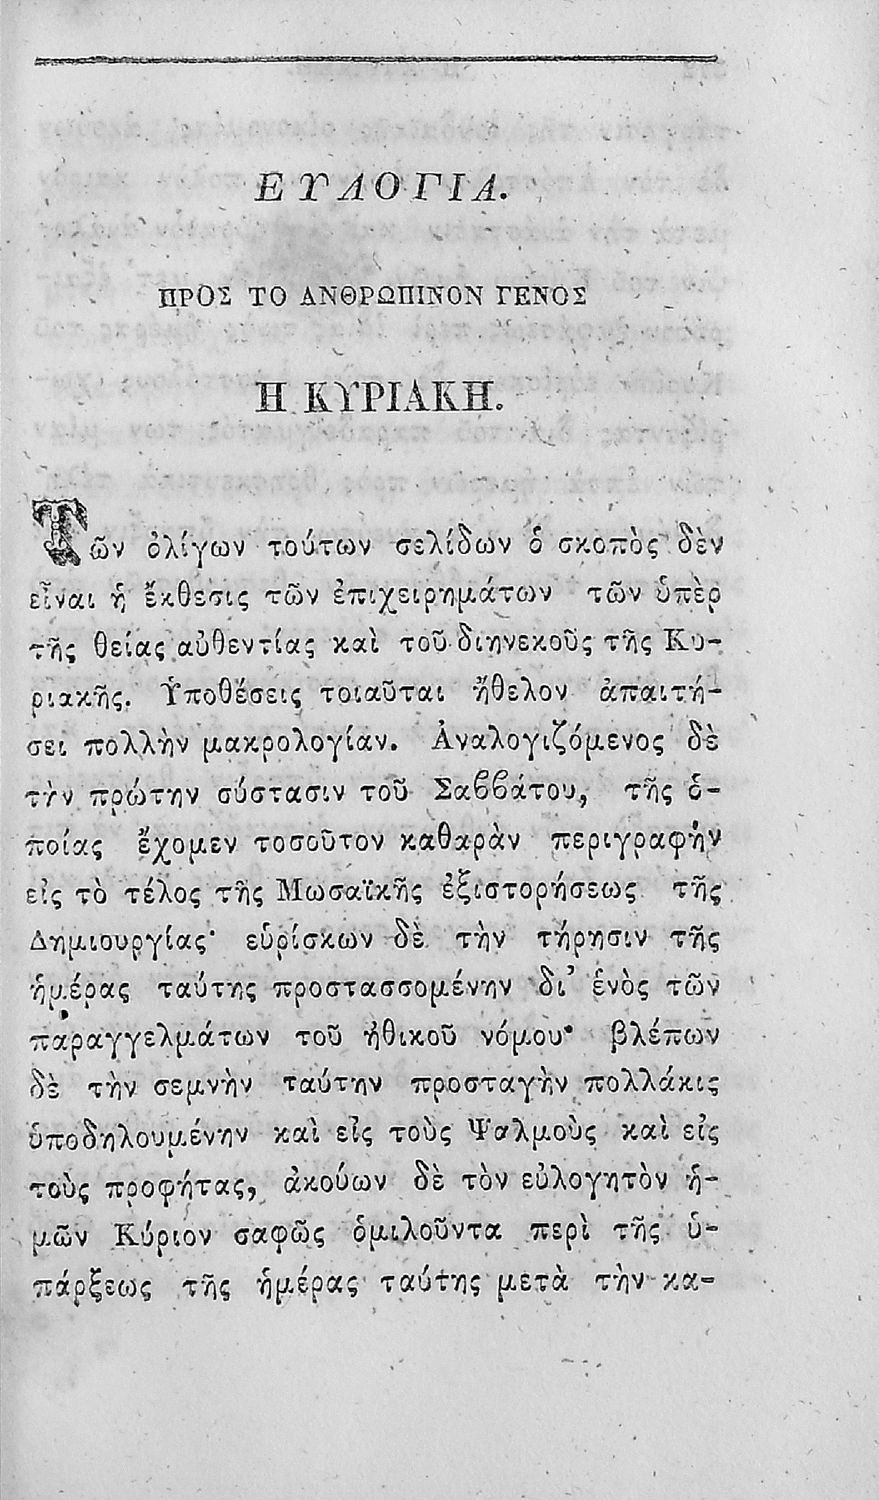 ΕΥΛΟΓΙΑ.
ΠΡΟΣ ΤΟ ΑΝΘΡΩΠΙΝΟΝ ΓΕΝΟΣ
Η ΚΥΡΙΑΚΗ.
Τῶν ὀλίγων τούτων σελίδων ὁ σκοπὸς δὲν
εἶναι ἡ ἔκθεσις τῶν ἐπιχειρημάτων τῶν ὑπὲρ
τῆς θείας αὐθεντίας καὶ τοῦ διηνεκοῦς τῆς Κυ-
ριακῆς. Ὑποθέσεις τοιαῦται ἤθελον ἀπαιτή-
σει πολλὴν μακρολογίαν. Ἀναλογιζόμενος δὲ
τὴν πρώτην σύστασιν τοῦ Σαϐϐάτου, τῆς ὁ-
ποίας ἔχομεν τοσοῦτον καθαρὰν περιγραφὴν
εἰς τὸ τέλος τῆς Μωσαϊκῆς ἐξιστορήσεως τῆς
Δημιουργίας· εὑρίσκων δὲ τὴν τήρησιν τῆς
ἡμέρας ταύτης προστασσομένην δι’ ἑνὸς τῶν
παραγγελμάτων τοῦ ἠθικοῦ νόμου· βλέπων
δὲ τὴν σεμνὴν ταύτην προσταγὴν πολλάκις
ὑποδηλουμένην καὶ εἰς τοὺς Ψαλμοὺς καὶ εἰς
τοὺς προφήτας, ἀκούων δὲ τὸν εὐλογητὸν ἡ-
μῶν Κύριον σαφῶς ὁμιλοῦντα περὶ τῆς ὑ-
πάρξεως τῆς ἡμέρας ταύτης μετὰ τὴν κα-